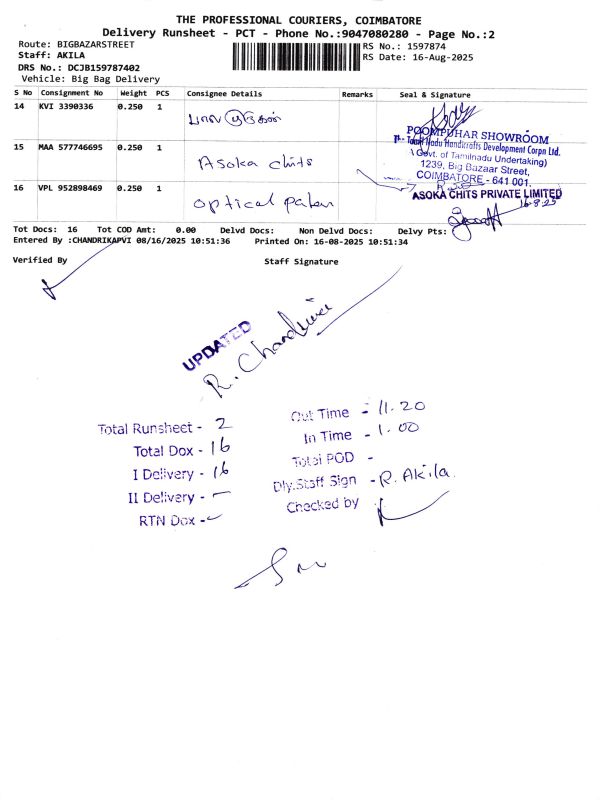 THE PROFESSIONAL COURIERS, COIMBATORE
Delivery Runsheet - PCT - Phone No.:9047080280 - Page No.:2
Route: BIGBAZARSTREET
RS No.: 1597874
Staff: AKILA
RS Date: 16-Aug-2025
DRS No.: DCJB159787402
Vehicle: Big Bag Delivery
S No Consignment No Weight PCS Consignee Details Remarks Seal & Signature
14 KVI 3390336 0.250 1
POOMPUHAR SHOWROOM
Tamil Nadu Handicrafts Development Corpn Ltd.
(Govt. of Tamilnadu Undertaking)
1239, Big Bazaar Street,
COIMBATORE - 641 001.
15 MAA 577746695 0.250 1 Asoka chits
16 VPL 952898469 0.250 1 optical
ASOKA CHITS PRIVATE LIMITED
16-8-25
Tot Docs: 16 Tot COD Amt: 0.00 Delvd Docs: Non Delvd Docs: Delvy Pts:
Entered By :CHANDRIKAPVI 08/16/2025 10:51:36 Printed On: 16-08-2025 10:51:34
Verified By Staff Signature
UPDATED
Total Runsheet - 2
Total Dox - 16
I Delivery - 16
II Delivery -
RTN Dox -
Out Time - 11.20
In Time - 1.00
Total POD -
Dly.Staff Sign - R. Akila.
Checked by